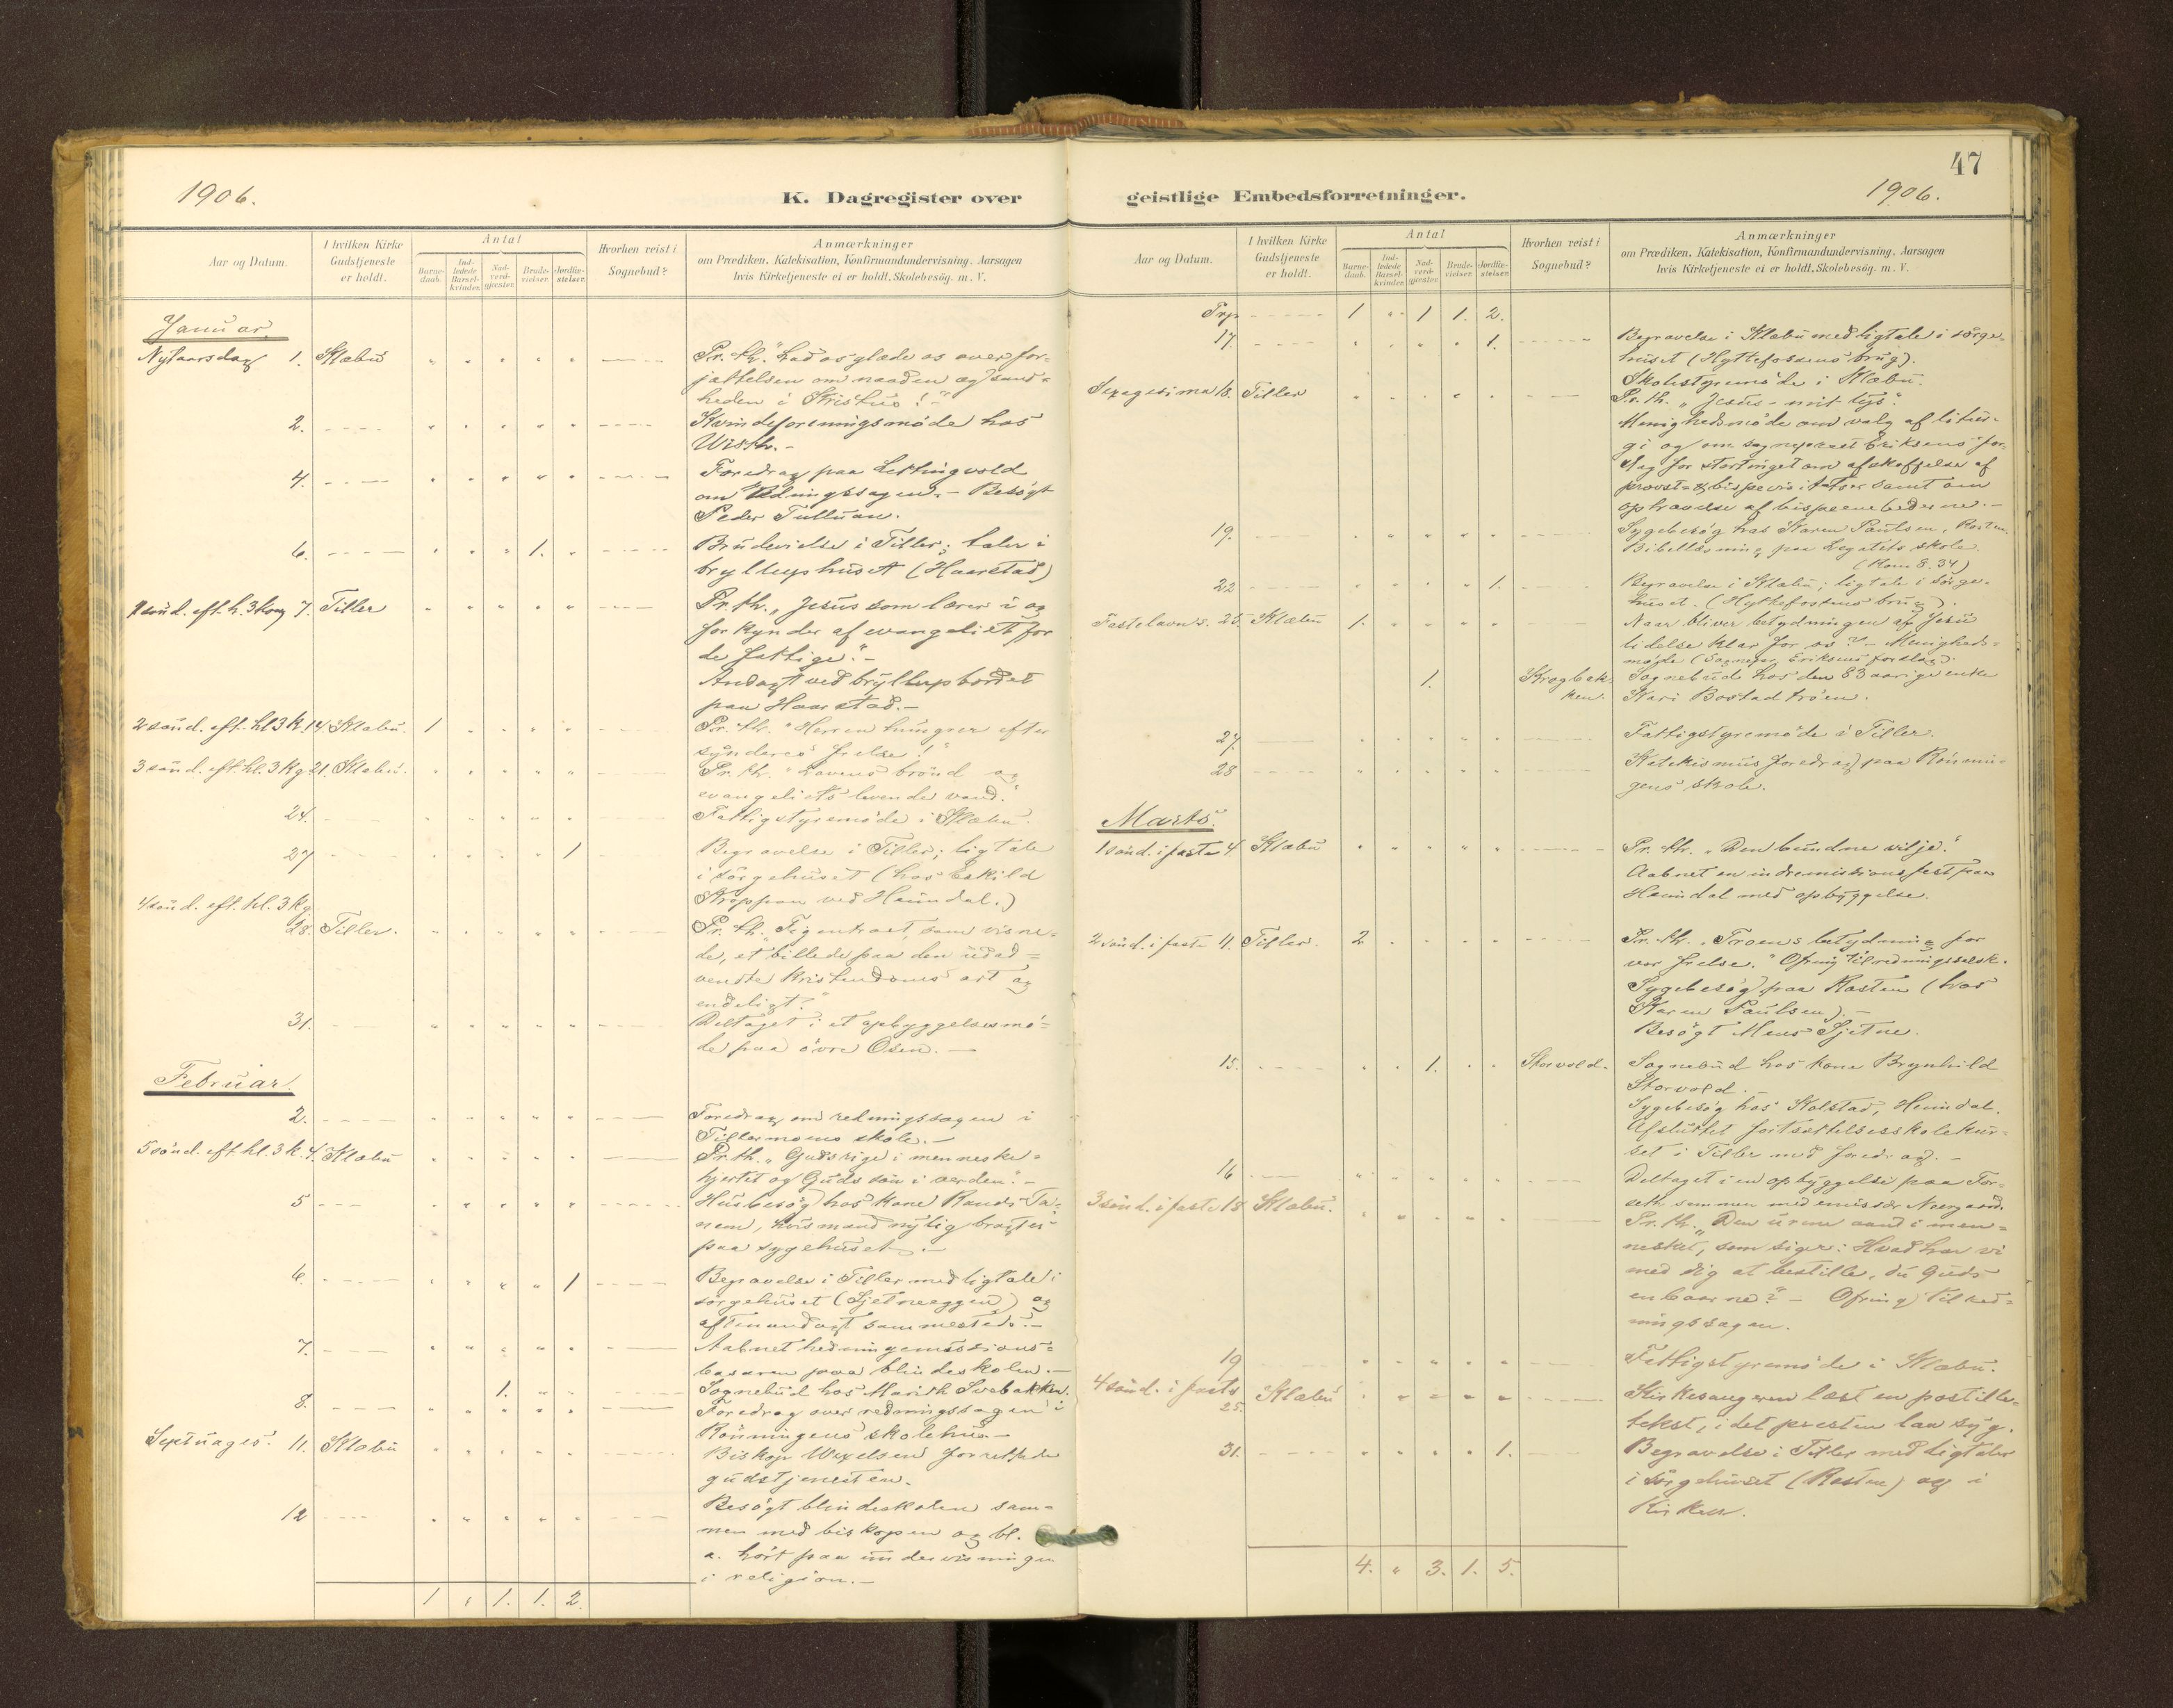 1906.
K. Dagregister over
Aar og Datum.
I hvilken Kirke Gudstjeneste er holdt.
Antal
Barnedaab.
Indledede Barselkvinder.
Nadverdgjæster.
Brudevielser.
Jordfæstelser.
Hvorhen reist i Sognebud?
Anmærkninger
om Prædiken, Katekisation, Konfirmandundervisning. Aarsagen
hvis Kirketjeneste ei er holdt, Skolebesög. m. V.
Januar
Nytaarsdag 1. Klæbu " " " " " Pr. th. "Lad os glæde os over for-
jættelsen om naaden og sand-
heden i Kristus!"-
2. " " " " " Kvindeforeningsmøde hos
Wisth.-
4. " " " " " Foredrag paa Lettingvold
om Redningssagen. - Besögt
Peder Tulluan.
6. " " " 1. " Brudevielse i Tiller; taler i
bryllupshuset (Haarstad)
1 sönd. eft. h. 3 kong 7. Tiller " " " " " Pr. th. "Jesus som lærer i og
forkynder af evangeliet for
de fattige."-
Andagt ved bryllupsbordet
paa Haarstad.-
2 sönd. eft. hl 3 K. 14. Klæbu. 1 " " " " Pr. th. "Herren hungrer efter
synderes frelse!"
3 sönd. eft. hl. 3 Kg. 21. Klæbu. " " " " " Pr. th. "Lovens brönd og
evangeliets levende vand."
24. " " " " " Fattigstyremöde i Klæbu.
27 " " " " 1 Begravelse i Tiller; ligtale
i sörgehuset (hos Eskild
Kroppan ved Heimdal.)
4 sönd. eft. hl. 3 Kg
28. Tiller. " " " " " Pr. th. "Figentræet, som visne-
de, et billede paa den udad-
vendte kristendoms art og
endeligt."
31. " " " " " Deltaget i et opbyggelsesmö-
de paa övre Osen. -
Februar.
2. " " " " " Foredrag om redningssagen i
Tillermoens skole.-
5 sönd. eft. hl. 3 K. 4. Klæbu " " " " " Pr. th. "Guds rige i menneske-
hjertet og Guds sön i verden."-
5 " " " " " Husbesög hos kone Randi Ta-
nem, hvis mand nylig bragtes
paa sygehuset.-
6. " " " " 1 Begravelse i Tiller med ligtale i
sörgehuset (Sjetneeggen) og
aftenandagt sammesteds.-
7. " " " " " Aabnet hedningemissions-
basaren paa blindeskolen.-
1. " " Sognebud hos Marith Svebakken.
8. " " " " " Foredrag over redningssagen i
Rönningens skolehus-
Septuages. 11. Klæbu " " " " " Biskop Wexelsen forrettede
gudstjenesten.
12 " " " " " Besögt blindeskolen sam-
men med biskopen og bl.
a. hört paa undervisningen
i religion.-
1 " 1. 1. 2.
47
1906.
geistlige Embedsforretninger.
Aar og Datum.
I hvilken Kirke Gudstjeneste er holdt.
Antal
Barnedaab.
Indledede Barselkvinder.
Nadverdgjæster.
Brudevielser.
Jordfæstelser.
Hvorhen reist i Sognebud?
Anmærkninger
om Prædiken, Katekisation, Konfirmandundervisning. Aarsagen
hvis Kirketjeneste ei er holdt, Skolebesög. m. V.
Trp 1 " 1 1. 2.
17 " " " " 1. Begravelse i Klæbu med ligtale i sörge-
huset (Hyttefossens brug).
Skolestyremöde i Klæbu.
Sexagesima 18. Tiller " " " " " Pr. th. "Jesus - mit lys."
Menighedsmöde om valg af litur-
gi og om sogneprest Eriksens for-
slag for stortinget om afskaffelse af
provst- & bispevisitatser samt om
ophævelse af bispeembederne.-
19. " " " " " Sygebesög hos Karen Paulsen, Rosten.
Bibellæsning paa Legatets skole.
(Rom 8. 34)
22 " " " " 1. Begravelse i Klæbu; ligtale i sörge-
huset. (Hyttefossens brug).
Fastelavns. 25. Klæbu 1. " " " " Naar bliver betydningen af Jesu
lidelse klar for os?" - Menigheds-
möde (Sognepr. Eriksens forslag).
1. Krogbak-
ken. Sognebud hos den 83 aarige enke
Kari Bostadtröen.
27. Fattigstyremöde i Tiller.
28 " " " " " Katekismusforedrag paa Rönnin-
gens skole.
Marts.
1 sönd. i faste 4. Klæbu " " " " " Pr. th. "Den bundne vilje."
Aabnet en indremissionsfest paa
Heimdal med opbyggelse.
2 sönd. i faste 11. Tiller. 2 " " " " Pr. th. "Troens betydning for
vor frelse." Ofring til redningsselsk.
Sygebesög paa Rosten (hos
Karen Paulsen).-
Besögt Mens Sjetne.
15. " " 1. " " Storvold. Sognebud hos kone Brynhild
Storvold.-
Sygebesög hos Kolstad, Heimdal.
Afsluttet fortsættelsesskolekur-
set i Tiller med foredrag.-
16 " " " " " Deltaget i en opbyggelse paa For-
seth sammen med emissær Neergaard.
3 sönd. i faste 18 Klæbu. " " " " " Pr. th. "Den urene aand i men-
nesket, som siger: Hvad har vi
med dig at bestille, du Guds
enbaarne?" - Ofring til red-
ningssagen.
19 " " " " " Fattigstyremöde i Klæbu.
4 sönd. i faste
25. Klæbu " " " " " Kirkesangeren læst en postille-
tekst, idet presten laa syg.
31. " " " " 1. Begravelse i Tiller med ligtaler
i sörgehuset (Rosten) og i
Kirken.
4. " 3. 1. 5.